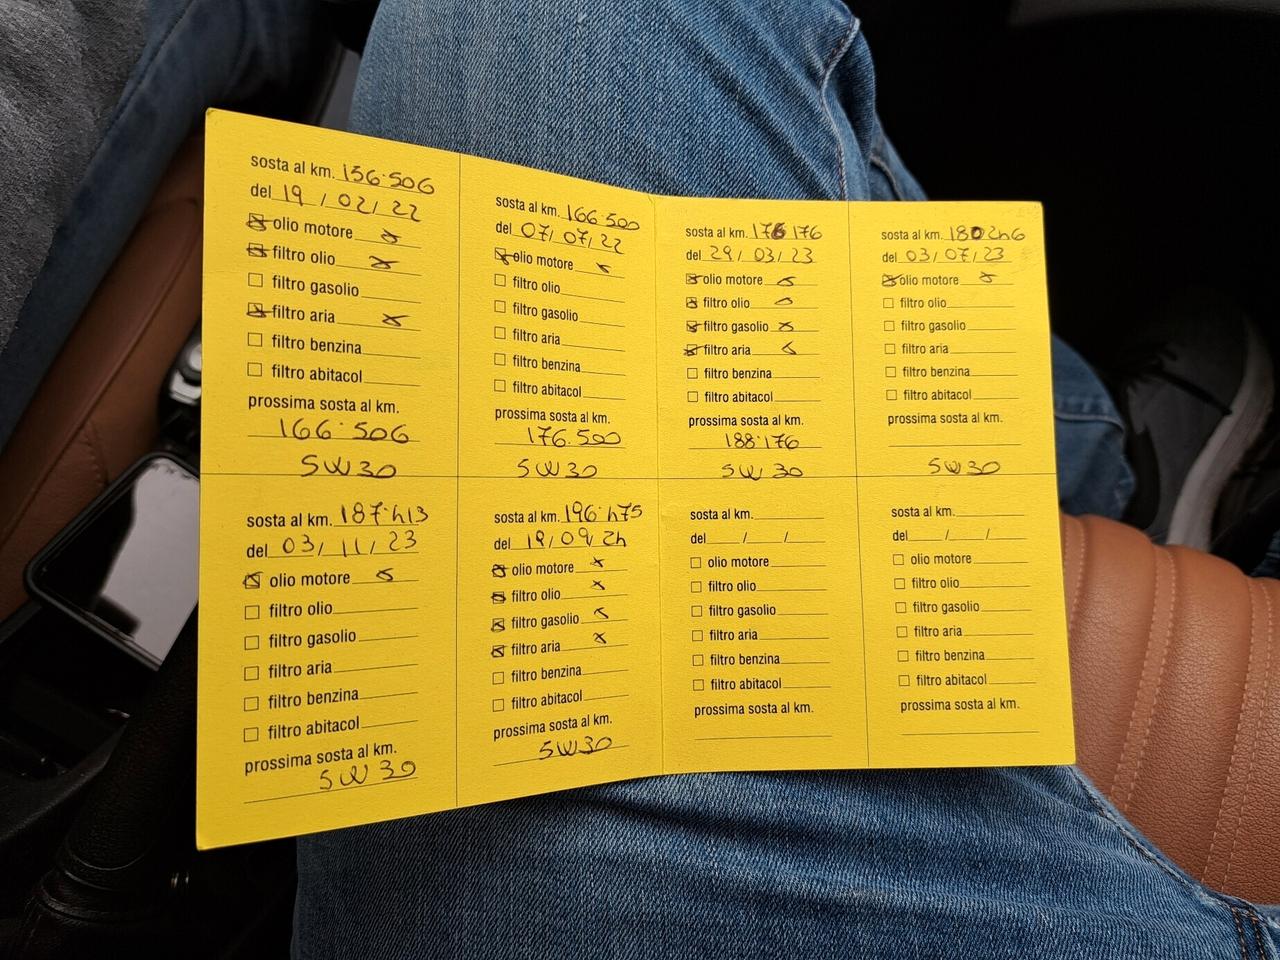 sosta al km. 156·506
del 19 / 02 / 22
olio motore x
filtro olio x
filtro gasolio
filtro aria x
filtro benzina
filtro abitacol
prossima sosta al km.
166·506
5W30
sosta al km. 166 500
del 07/ 07/ 22
olio motore x
filtro olio
filtro gasolio
filtro aria
filtro benzina
filtro abitacol
prossima sosta al km.
176.500
5W30
sosta al km. 176 176
del 29 / 03 / 23
olio motore x
filtro olio x
filtro gasolio x
filtro aria x
filtro benzina
filtro abitacol
prossima sosta al km.
188·176
5W30
sosta al km. 180246
del 03 / 07 / 23
olio motore x
filtro olio
filtro gasolio
filtro aria
filtro benzina
filtro abitacol
prossima sosta al km.
5W30
sosta al km. 187·413
del 03 / 11 / 23
olio motore x
filtro olio
filtro gasolio
filtro aria
filtro benzina
filtro abitacol
prossima sosta al km.
5W30
sosta al km. 196·475
del / 09 / 24
olio motore x
filtro olio x
filtro gasolio x
filtro aria x
filtro benzina
filtro abitacol
prossima sosta al km.
5W30
sosta al km.
del / /
olio motore
filtro olio
filtro gasolio
filtro aria
filtro benzina
filtro abitacol
prossima sosta al km.
sosta al km.
del / /
olio motore
filtro olio
filtro gasolio
filtro aria
filtro benzina
filtro abitacol
prossima sosta al km.